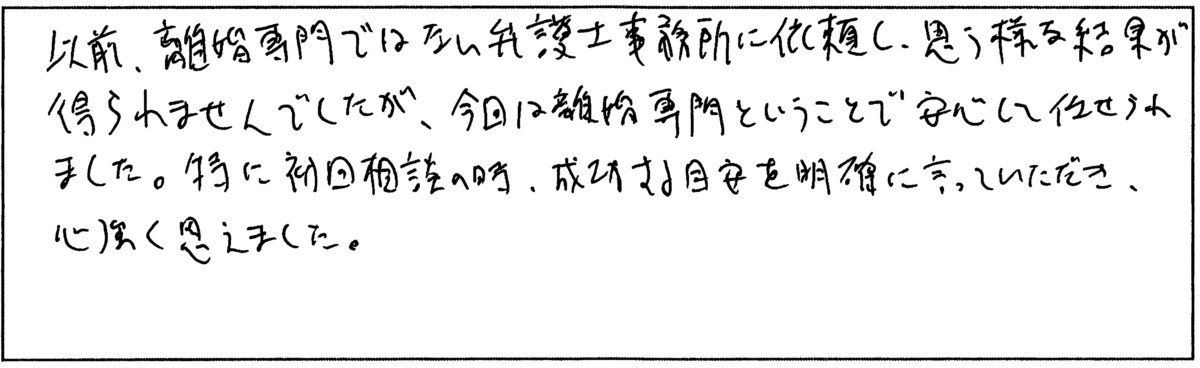 以前、離婚専門ではない弁護士事務所に依頼し、思う様な結果が
得られませんでしたが、今回は離婚専門ということで安心して任せられ
ました。特に初回相談の時、成功する目安を明確に言っていただき、
心強く思えました。